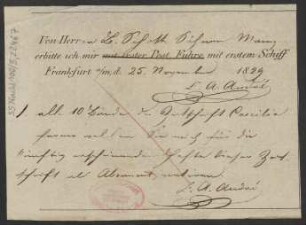 Von Herren B. Schott Söhnen Mainz
erbitte ich mir mit erster Post, Fuhre, mit erstem Schiff
Frankfurt a/m, d. 25. November 1829
C. A. André
1 all. 10 Bände der Zeitschrift Caecilia
ferner wollen Sie mich für die
künftig erscheinenden Hefte dieser Zeit-
schrift als Abonnent notiren
C. A. André